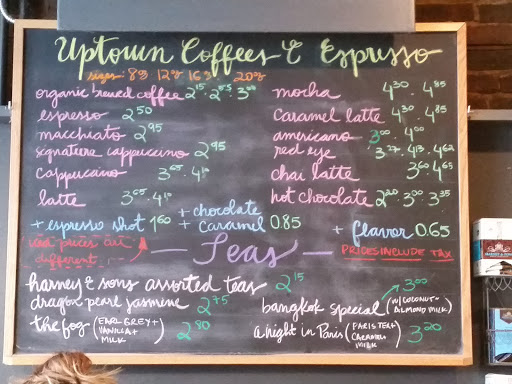 Uptown Coffees & Espresso
sizes: 8oz 12oz 16oz 20oz
organic brewed coffee 2.15 · 2.55 · 3.00
espresso 2.50
macchiato 2.95
signature cappuccino 2.95
cappuccino 3.65 · 4.10
latte 3.65 · 4.10
mocha 4.30 · 4.85
Caramel latte 4.30 · 4.85
americano 3.00 · 4.00
red eye 3.77 · 4.13 · 4.62
chai latte 3.60 4.65
hot chocolate 2.20 · 3.00 · 3.35
+ espresso shot 1.60
+ chocolate
+ caramel 0.85
+ flavor 0.65
iced prices are
different
PRICES INCLUDE TAX
— Teas —
harney & sons assorted teas 2.15
dragon pearl jasmine 2.75
the fog (EARL GREY + VANILLA + MILK) 2.80
bangkok special (w/ COCONUT + ALMOND MILK) 3.00
a night in Paris (PARIS TEA + CARAMEL + MILK) 3.20